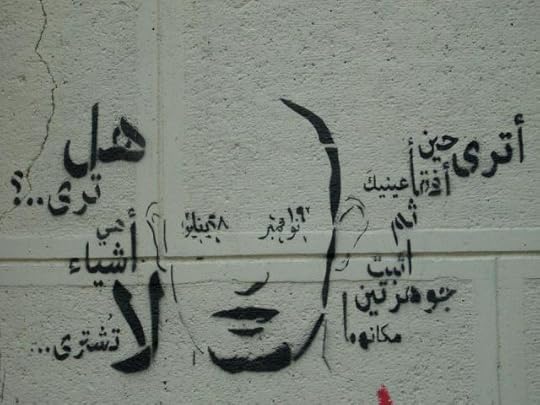 أترى حين
أفقأ عينيك
ثم
اثبت
جوهرتين
مكانهما
١٩ نوفمبر
٢٨ يناير
هل
ترى..؟
هي
أشياء
لا
تُشترى...